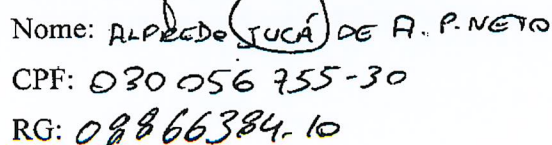 Nome: ALFREDO JUCÁ DE A. P. NETO
CPF: 030 056 755-30
RG: 08866384-10